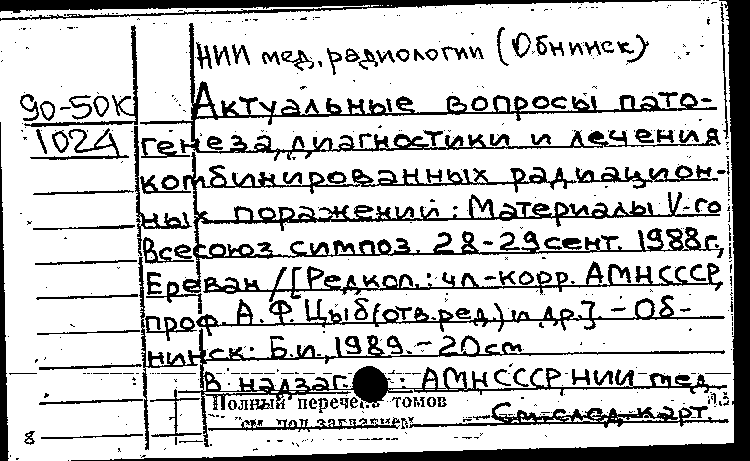 НИИ мед. радиологии (Обнинск)
90-50К
1024
Актуальные вопросы пато-
генеза, диагностики и лечения
комбинированных радиацион-
ных поражений: Материалы V-го
Всесоюз. симпоз. 28-29 сент. 1988 г.,
Ереван / [Редкол.: чл-корр. АМН СССР,
проф. А. Ф. Цыб (отв. ред.) и др.] - Об-
нинск: Б.и., 1989. - 20 см
В надзаг.: АМН СССР, НИИ мед.
Полный перечень томов
см. под заглавием
См. след. карт.
8